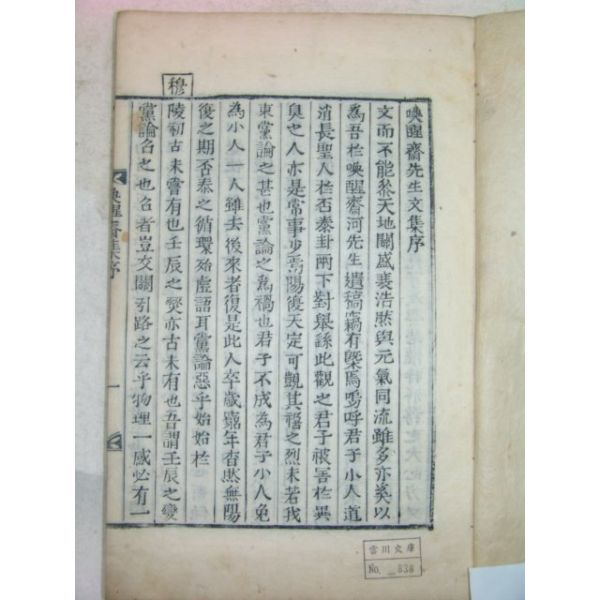 喚醒齋先生文集序
文而不能參天地關盛衰浩然與元氣同流雖多亦奚以
為吾於喚醒齋河先生遺稿竊有槩焉嗚呼君子小人道
消長聖人於否泰卦兩下對舉繇此觀之君子被害於異
臭之人亦是常事少焉陽復天定可觀其禍之烈未若我
東黨論之甚也黨論之為禍也君子不成為君子小人免
為小人一人雖去後來者復是此人卒歲窮年杳然無陽
復之期否泰之循環殆虛語耳黨論惡乎始始於
穆
陵初古未嘗有也壬辰之燹亦古未有也吾謂壬辰之變
黨論召之也召者豈交關引路之云乎物理一感必有一
喚醒齋集序
一
雲川文庫
No. 838